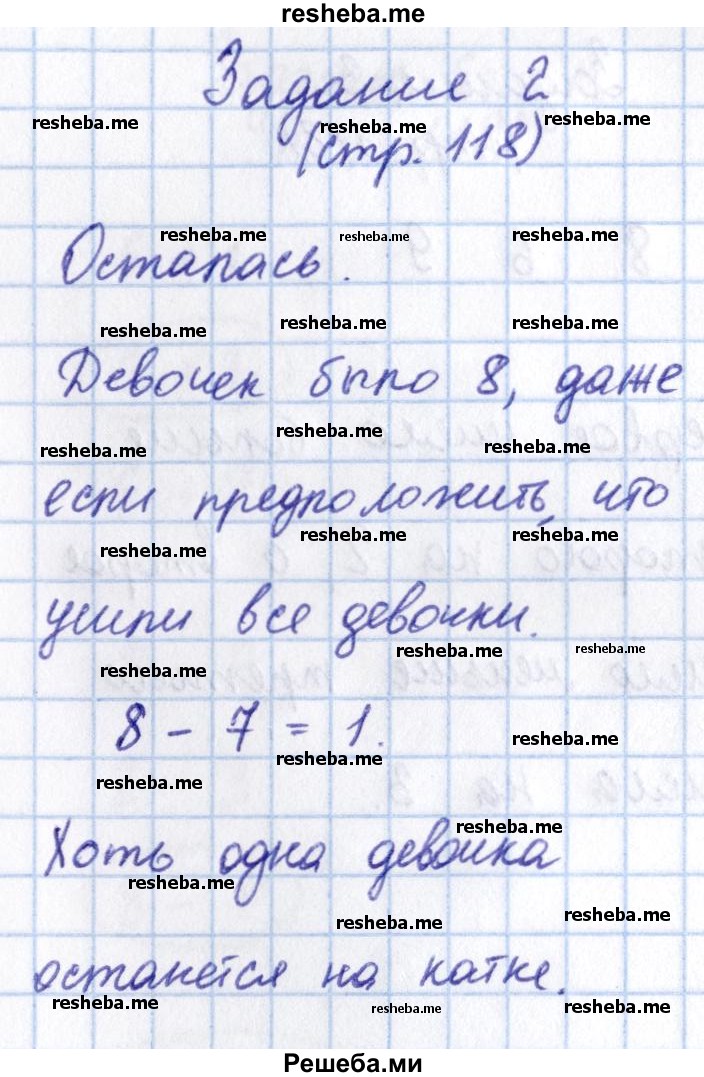 resheba.me
Задание 2
resheba.me resheba.me resheba.me
(стр. 118)
resheba.me resheba.me resheba.me
Осталась.
resheba.me resheba.me resheba.me
Девочек было 8, даже
resheba.me resheba.me resheba.me
если предположить, что
resheba.me resheba.me resheba.me
ушли все девочки.
resheba.me resheba.me resheba.me
8 - 7 = 1.
resheba.me resheba.me resheba.me
Хоть одна девочка
resheba.me resheba.me
resheba.me resheba.me
останется на катке.
resheba.me resheba.me resheba.me
Решеба.ми